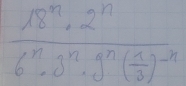 18ⁿ · 2ⁿ
6ⁿ · 3ⁿ · 9ⁿ (1/3)⁻ⁿ